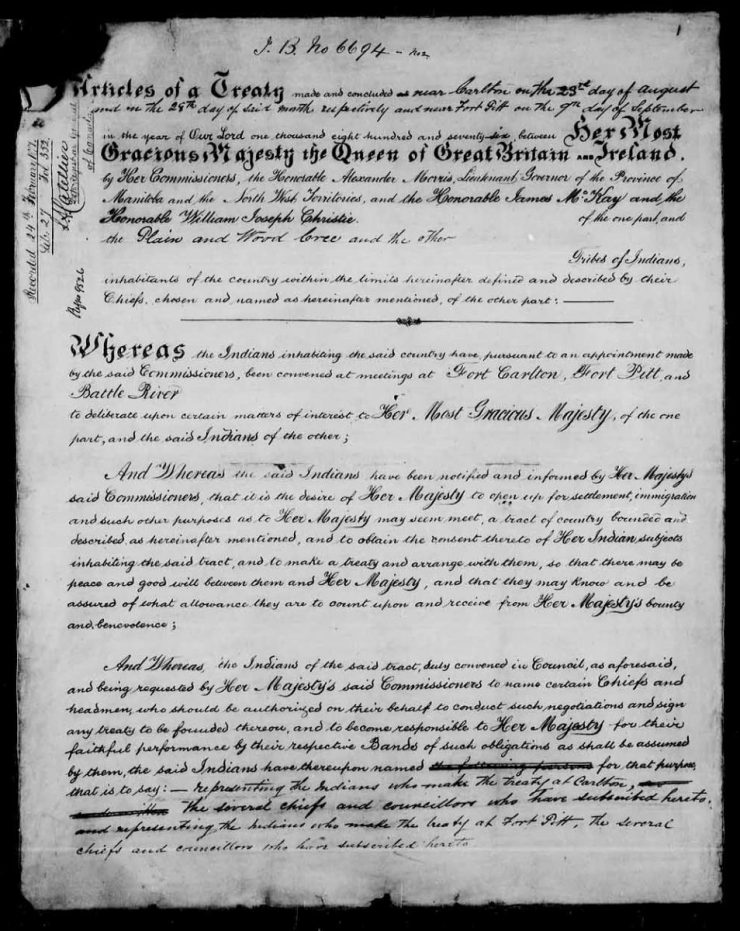 1
I. B. No 6694
Articles of a Treaty made and concluded at near Carlton on the 23rd day of August
and on the 28th day of said month respectively and near Fort Pitt on the 9th day of September
in the year of Our Lord one thousand eight hundred and seventy-six between Her Most
Gracious Majesty the Queen of Great Britain and Ireland,
by Her Commissioners, the Honorable Alexander Morris, Lieutenant Governor of the Province of
Manitoba and the North West Territories, and the Honorable James McKay and the
Honorable William Joseph Christie of the one part, and
the Plain and Wood Cree and the other
Tribes of Indians,
inhabitants of the country within the limits hereinafter defined and described by their
Chiefs, chosen and named as hereinafter mentioned, of the other part:
Whereas the Indians inhabiting the said country have, pursuant to an appointment made
by the said Commissioners, been convened at meetings at Fort Carlton, Fort Pitt, and
Battle River
to deliberate upon certain matters of interest to Her Most Gracious Majesty, of the one
part, and the said Indians of the other;
And Whereas the said Indians have been notified and informed by Her Majesty's
said Commissioners, that it is the desire of Her Majesty to open up for settlement, immigration
and such other purposes as to Her Majesty may seem meet, a tract of country bounded and
described as hereinafter mentioned, and to obtain the consent thereto of Her Indian subjects
inhabiting the said tract, and to make a treaty and arrange with them, so that there may be
peace and good will between them and Her Majesty, and that they may know and be
assured of what allowance they are to count upon and receive from Her Majesty's bounty
and benevolence;
And Whereas, the Indians of the said tract, duly convened in Council, as aforesaid,
and being requested by Her Majesty's said Commissioners to name certain Chiefs and
headmen, who should be authorized on their behalf to conduct such negotiations and sign
any treaty to be founded thereon, and to become responsible to Her Majesty for their
faithful performance by their respective Bands of such obligations as shall be assumed
by them, the said Indians have thereupon named the following persons for that purpose,
that is to say: — representing the Indians who make the treaty at Carlton,
the several chiefs and councillors who have subscribed hereto,
and representing the Indians who make the treaty at Fort Pitt, the several
chiefs and councillors who have subscribed hereto
Recorded 24th February 1877
Lib. 27 Fol 352
L A Catellier
Dep. Registrar General
of Canada